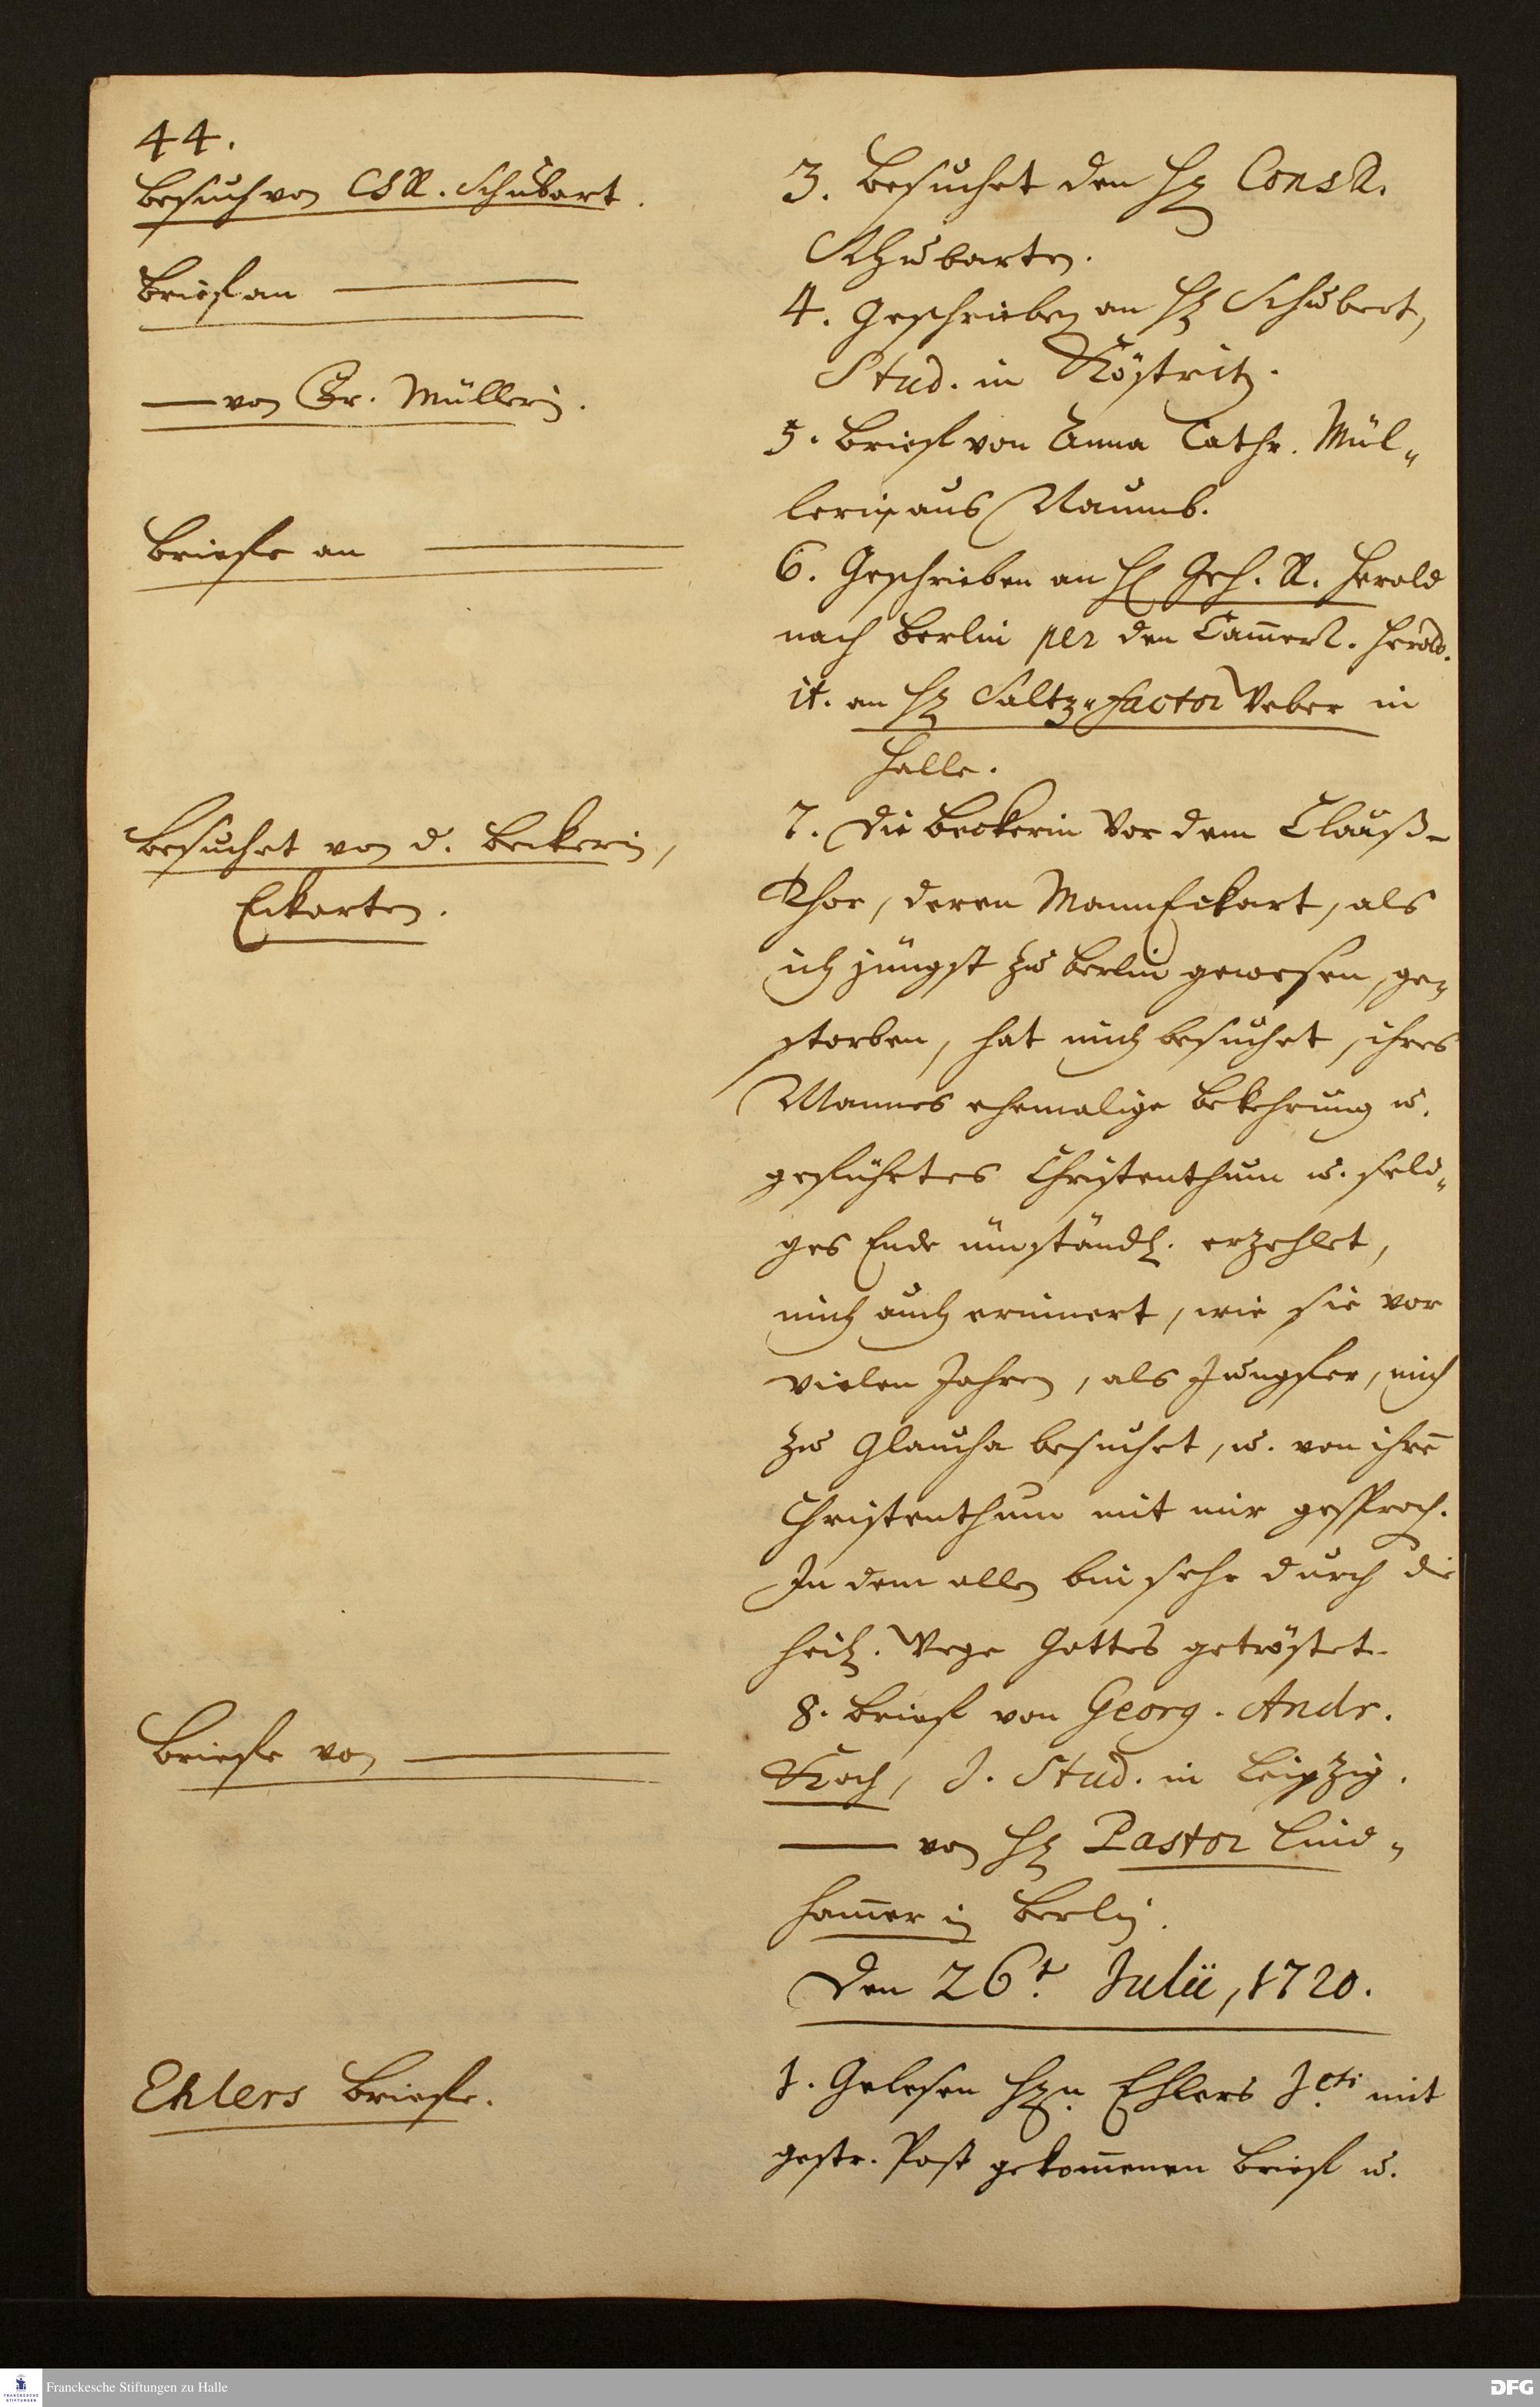 44.
Besuch von CSR. Schubart.
Brief an
— von Fr. Müllerin.
Briefe an
Besuchet von d. Beckerin,
Eckarten.
Briefe von
Ehlers Briefe.
3. Besuchet den H. ConsR.
Schubarten.
4. Geschrieben an H. Schubert,
Stud. in Köstritz.
5. Brief von Anna Cathr. Mül-
lerin aus Naumb.
6. Geschrieben an H. Geh. R. Herold
nach Berlin per den Cam̄erR. Herold.
it. an H. Saltz-factor Weber in
Halle.
7. Die Beckerin vor dem Clauß-
thor, deren Mann Eckart, als
ich jüngst zu Berlin gewesen, ge-
storben, hat mich besuchet, ihres
Mannes ehemalige Bekehrung u.
geführtes Christenthum u. seli-
ges Ende ümständl. erzehlet,
mich auch erinnert, wie sie vor
vielen Jahren, als Jungfer, mich
zu Glaucha besuchet, u. von ihrē
Christenthum mit mir gesproch.
In dem allen bin sehr durch die
heil. Wege Gottes getröstet.
8. Brief von Georg. Andr.
Koch, J. Stud. in Leipzig.
— von H. Pastor Lind-
ham̄er in Berlin.
Den 26t. Julii, 1720.
1. Gelesen Hrn. Ehlers Jcti mit
gestr. Post gekom̄enen Brief u.
Franckesche Stiftungen zu Halle
FRANCKESCHE STIFTUNGEN
DFG